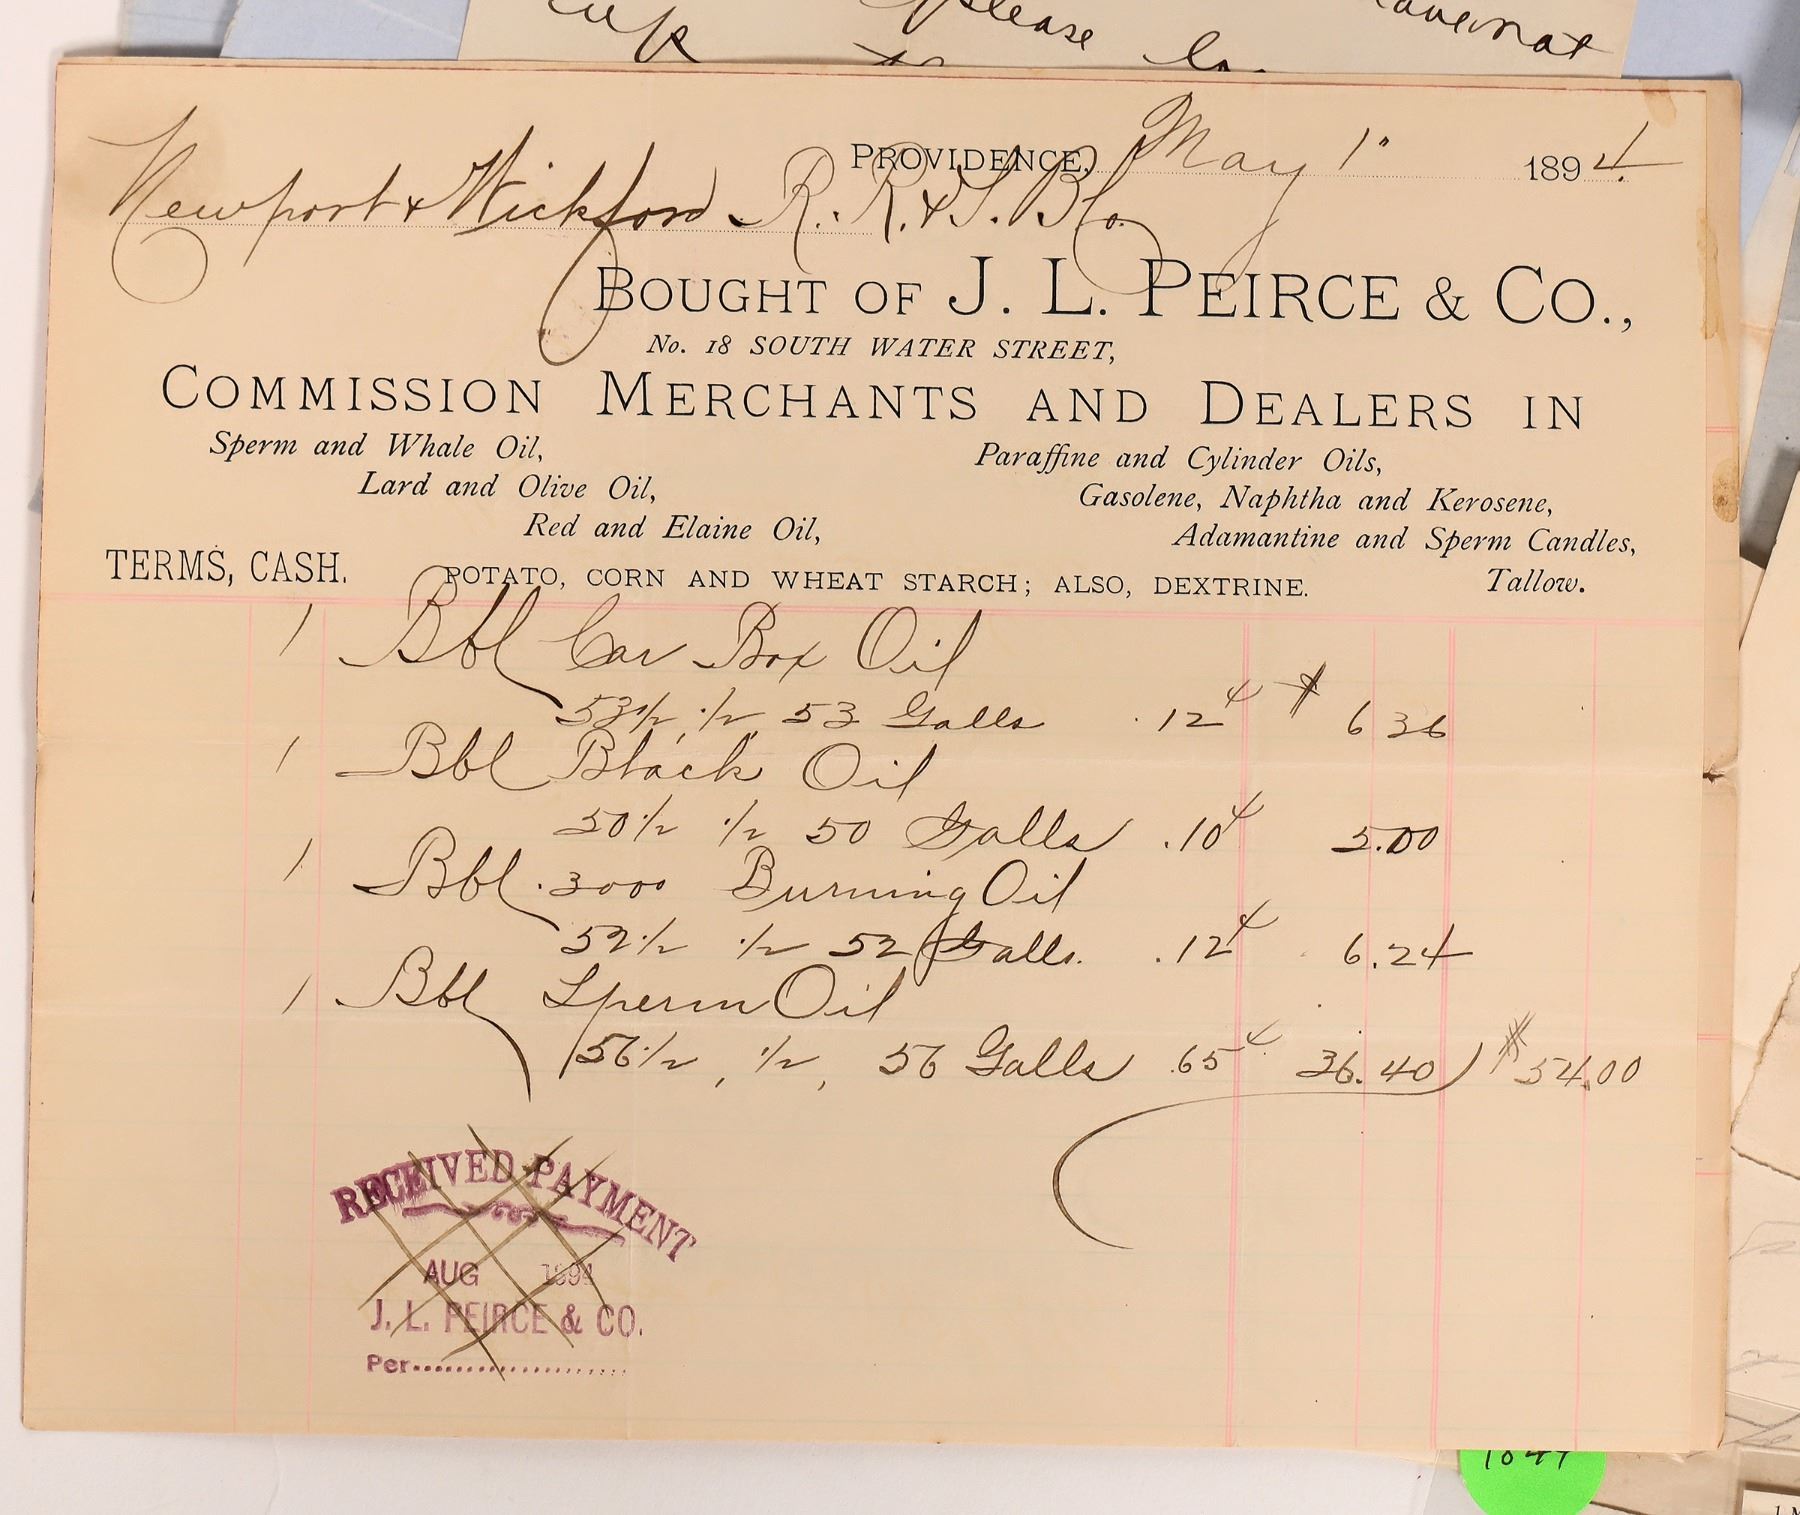 please
to
PROVIDENCE, May 1" 1894.
Newport & Wickford R. R. & S. B Co.
BOUGHT OF J. L. PEIRCE & CO.,
No. 18 SOUTH WATER STREET,
COMMISSION MERCHANTS AND DEALERS IN
Sperm and Whale Oil,
Lard and Olive Oil,
Red and Elaine Oil,
Paraffine and Cylinder Oils,
Gasolene, Naphtha and Kerosene,
Adamantine and Sperm Candles,
Tallow.
TERMS, CASH.
POTATO, CORN AND WHEAT STARCH; ALSO, DEXTRINE.
1 Bbl Car Box Oil
53 1/2, 1/2 53 Galls .12¢ $ 6 36
1 Bbl Black Oil
50 1/2 1/2 50 Galls .10¢ 5.00
1 Bbl. 3000 Burning Oil
52 1/2 1/2 52 Galls. .12¢ 6.24
1 Bbl Sperm Oil
56 1/2, 1/2, 56 Galls .65¢ 36.40 $54.00
RECEIVED PAYMENT
AUG 1894
J. L. PEIRCE & CO.
Per